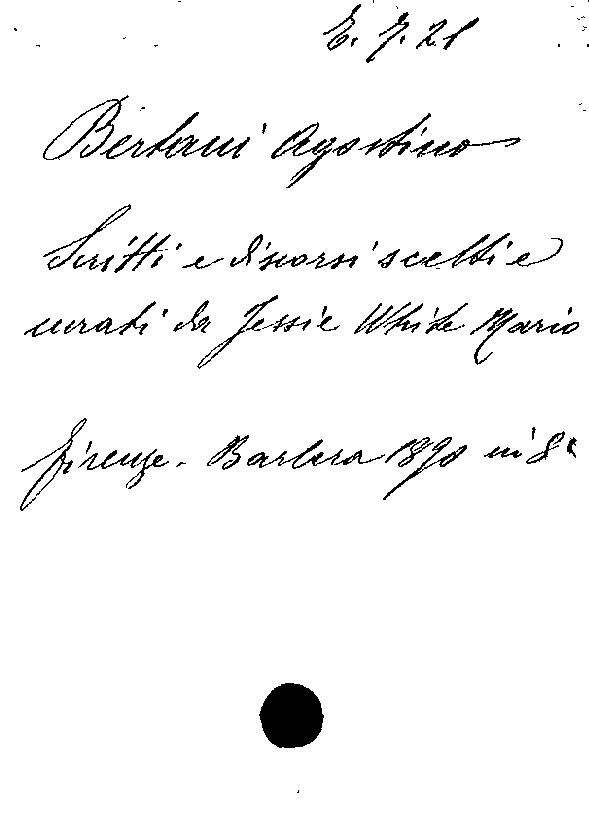 E. 7. 21
Bertani Agostino
Scritti e discorsi scelti e
curati da Jessie White Mario
Firenze. Barbera 1890 in 8°